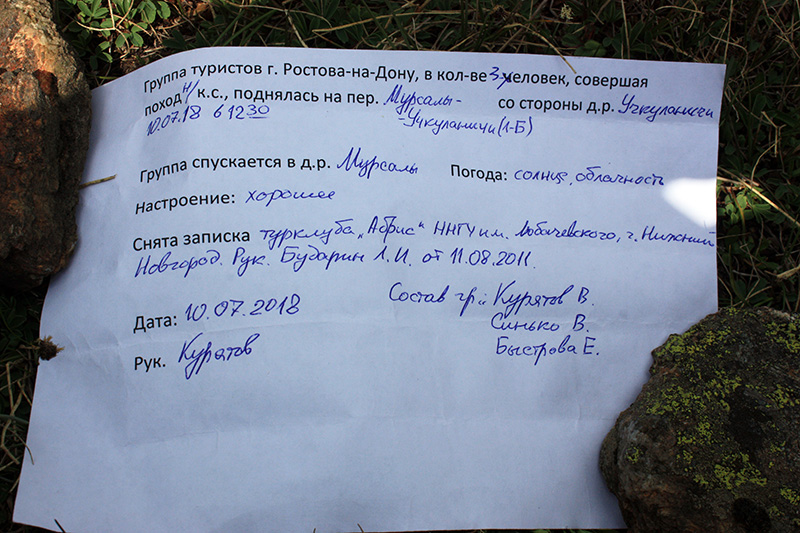 Группа туристов г. Ростова-на-Дону, в кол-ве 3 человек, совершая
поход н/к.с., поднялась на пер. Мурсалы- со стороны д.р. Учкуланичи
10.07.18 в 12 30 -Учкуланичи (1-Б)
Группа спускается в д.р. Мурсалы Погода: солнце, облачность
Настроение: хорошее
Снята записка турклуба „Абрис“ ННГУ им. Лобачевского, г. Нижний
Новгород. Рук. Бударин Л.И. от 11.08.2011.
Дата: 10.07.2018 Состав гр.: Курятов В.
Синько В.
Рук. Курятов Быстрова Е.